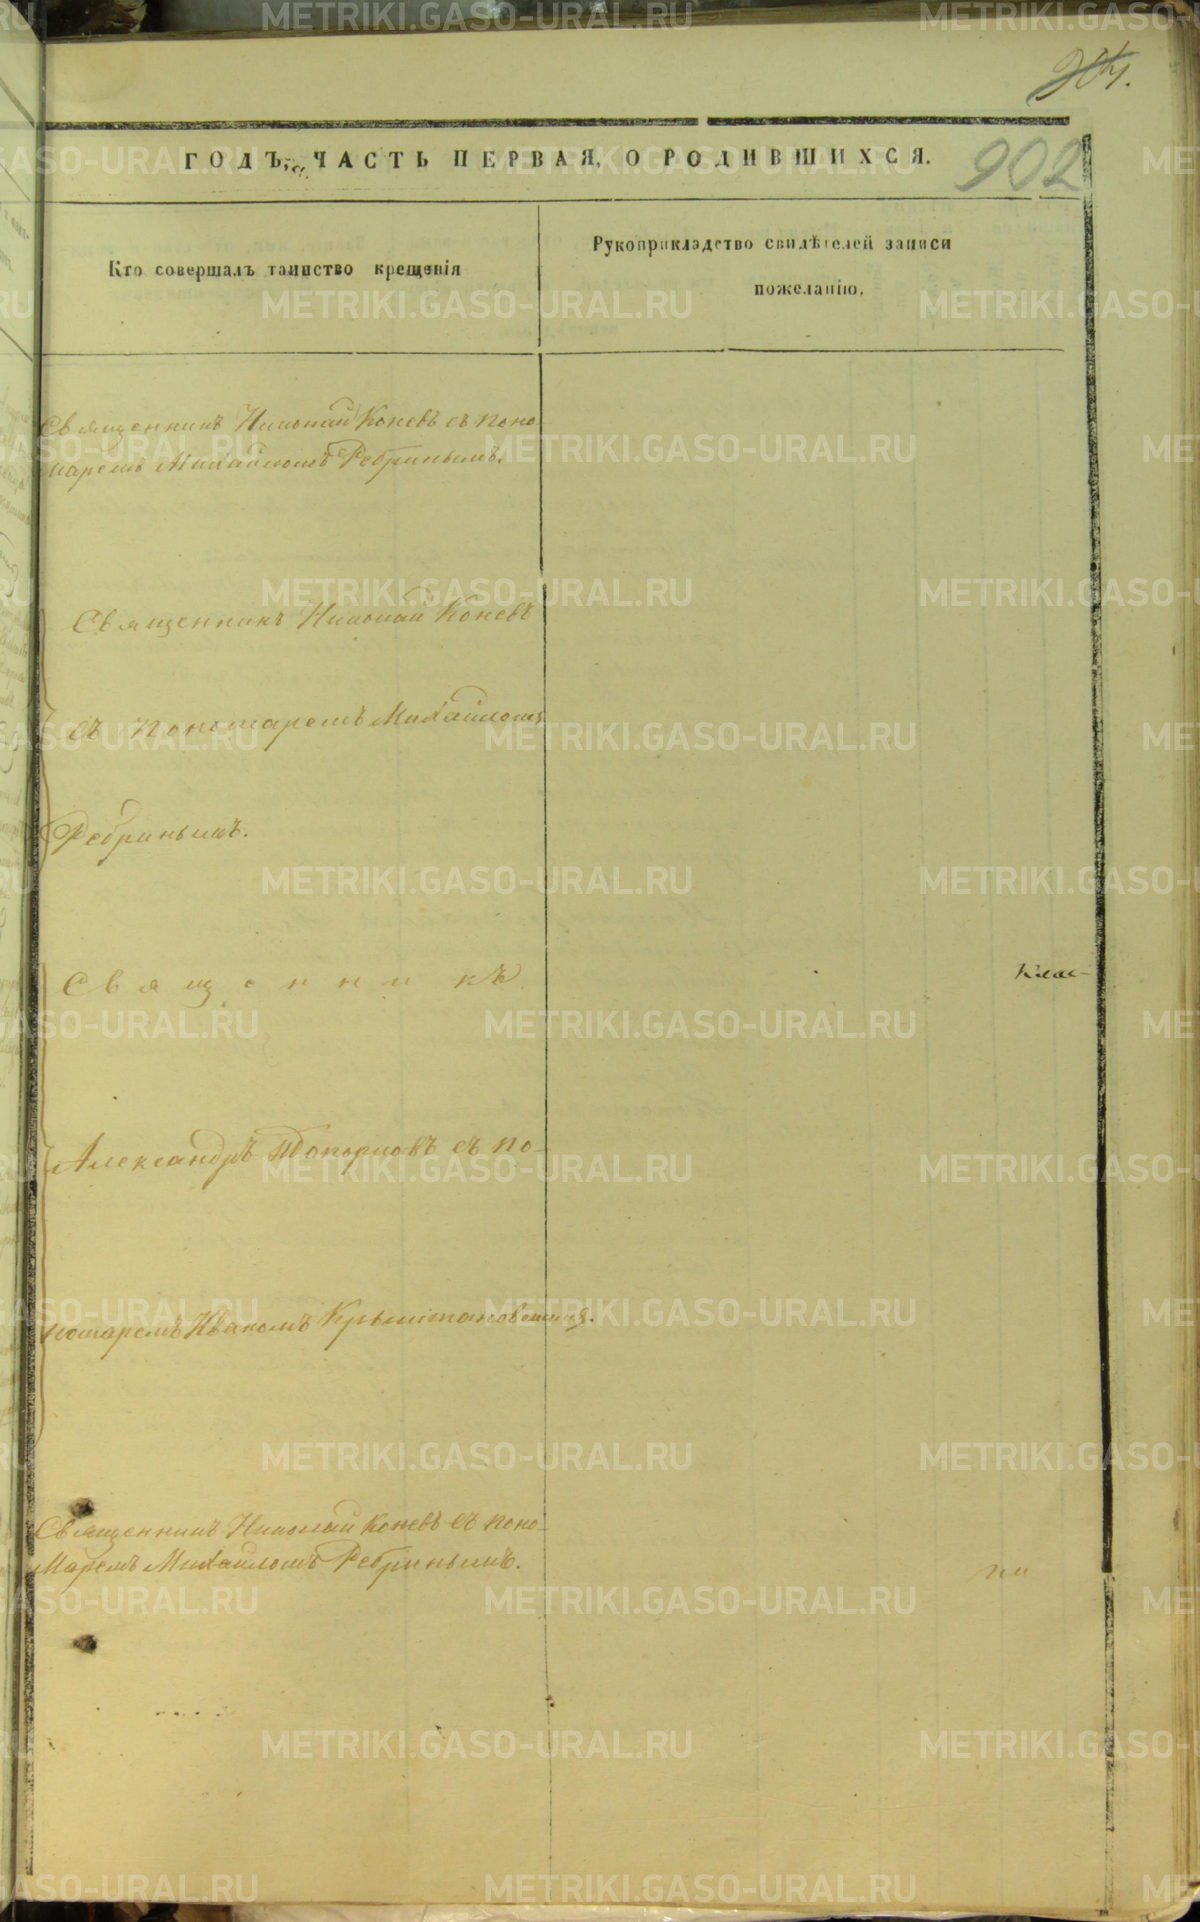 902
ГОДЪ, ЧАСТЬ ПЕРВАЯ, О РОДИВШИХСЯ.
Кто совершалъ таинство крещенія
Рукоприкладство свидѣтелей записи
пожеланію.
Священникъ Николай Коневъ съ поно
маремъ Михайломъ Ребринымъ.
Священникъ Николай Коневъ
съ пономаремъ Михайломъ
Ребринымъ.
Священникъ
Александръ Топорковъ съ по-
номаремъ Иваномъ
Священникъ Николай Коневъ съ поно-
маремъ Михайломъ Ребринымъ.
METRIKI.GASO-URAL.RU